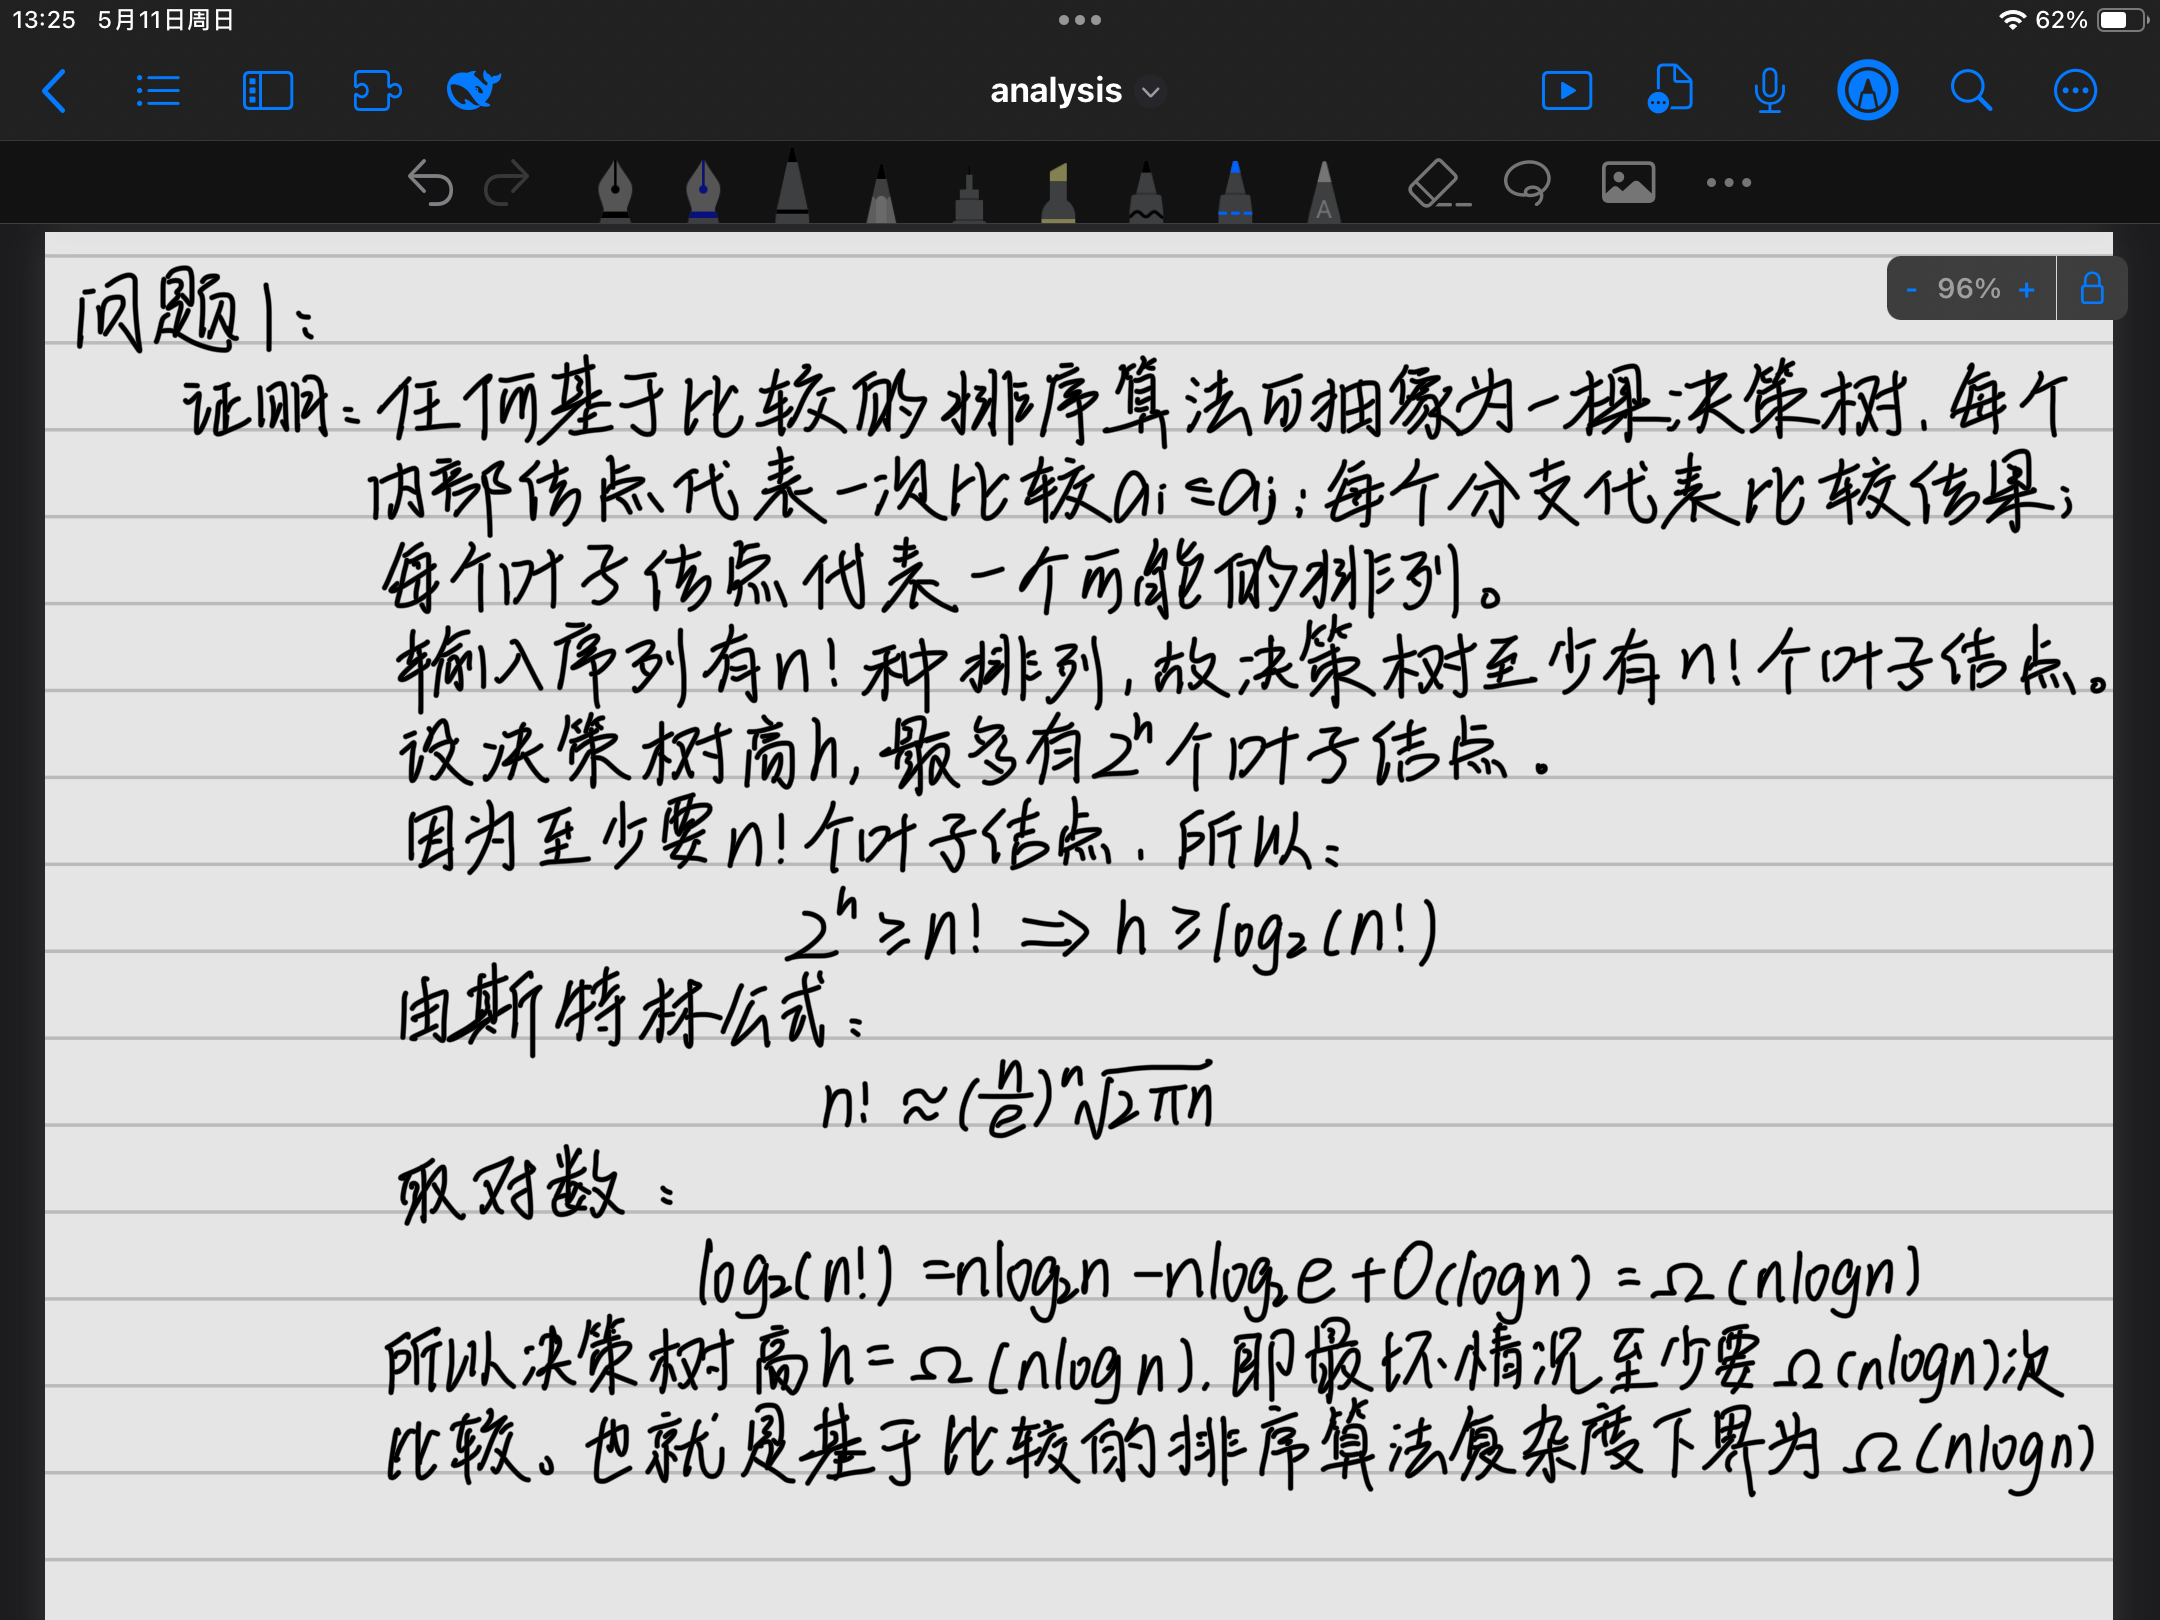 13:25 5月11日周日
62%
analysis
A
- 96% +
问题1:
证明:任何基于比较的排序算法可抽象为一棵决策树.每个
内部结点代表一次比较aᵢ≤aⱼ;每个分支代表比较结果;
每个叶子结点代表一个可能的排列。
输入序列有n!种排列,故决策树至少有n!个叶子结点。
设决策树高h,最多有2ʰ个叶子结点.
因为至少要n!个叶子结点.所以:
2ʰ≥n! ⇒ h≥log₂(n!)
由斯特林公式:
n! ≈ (n/e)ⁿ√2πn
取对数:
log₂(n!) =nlog₂n -nlog₂e +O(logn) = Ω(nlogn)
所以决策树高h=Ω(nlogn).即最坏情况至少要Ω(nlogn)次
比较。也就是基于比较的排序算法复杂度下界为Ω(nlogn)